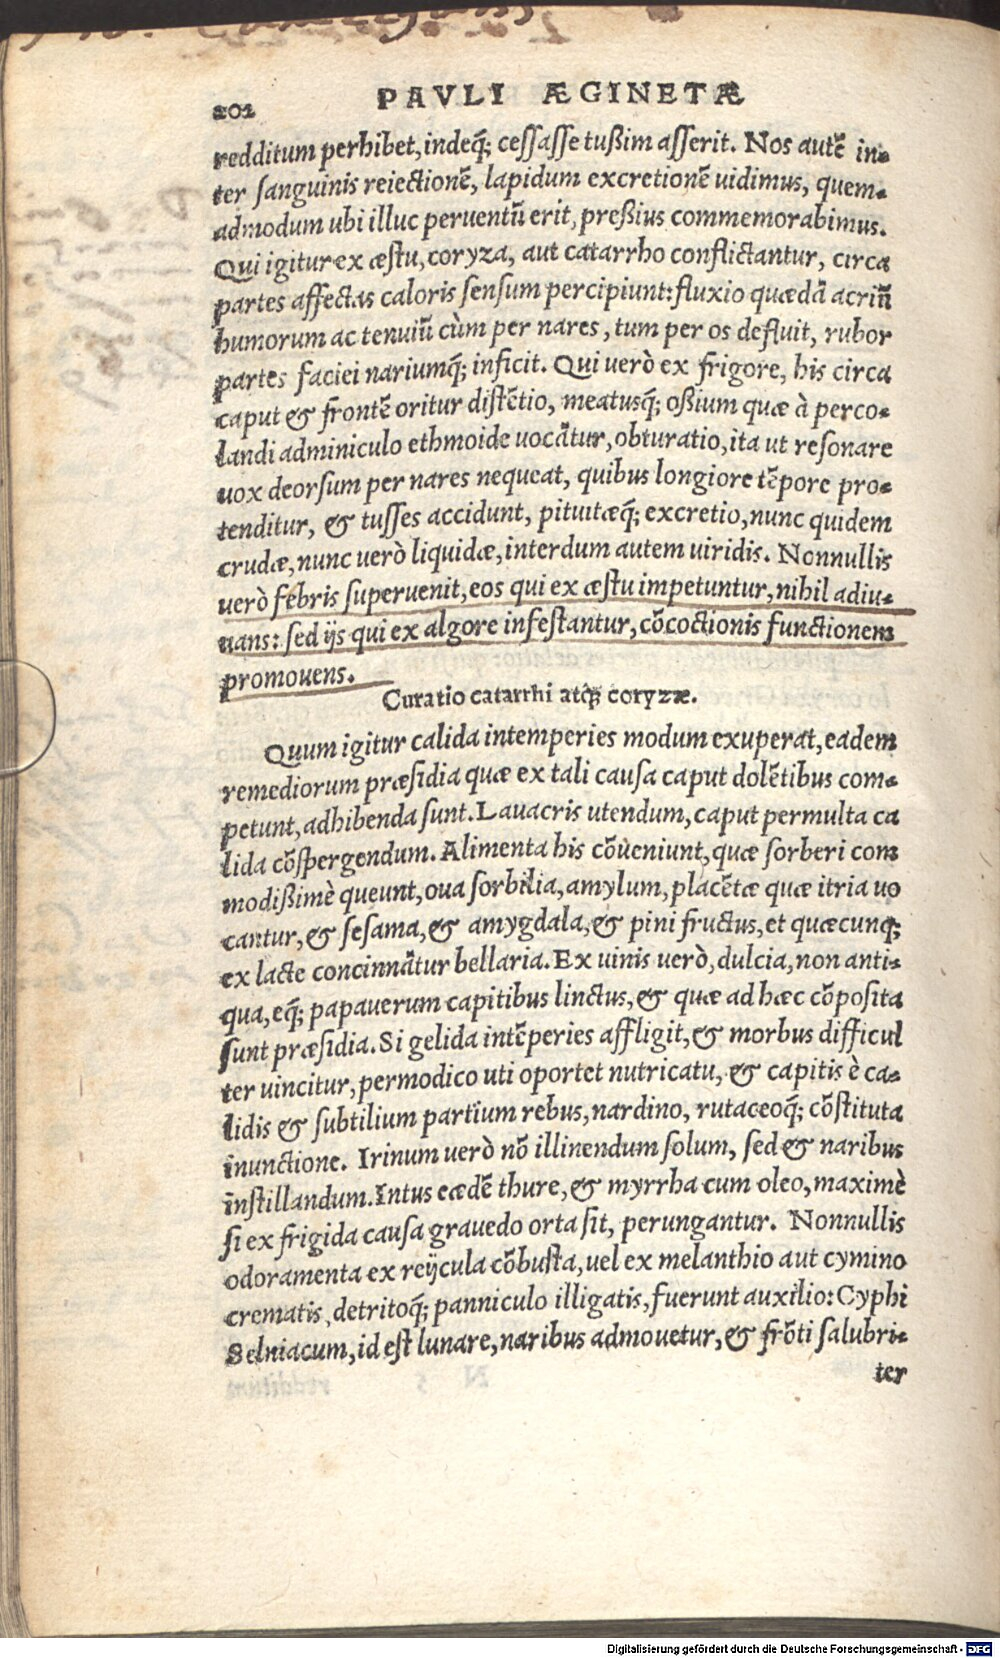 202 PAVLI ÆGINETÆ
redditum perhibet, indeq́; ceſſaſſe tußim aſſerit. Nos autē in-
ter ſanguinis reiectionē, lapidum excretionē uidimus, quem-
admodum ubi illuc peruentū erit, preßius commemorabimus.
Qui igitur ex æſtu, coryza, aut catarrho conflictantur, circa
partes affectas caloris ſenſum percipiunt: fluxio quædā acriū
humorum ac tenuiū cùm per nares, tum per os defluit, rubor
partes faciei nariumq́; inficit. Qui uerò ex frigore, his circa
caput & frontē oritur diſtētio, meatusq́; oßium quæ à perco-
landi adminiculo ethmoide uocātur, obturatio, ita ut reſonare
uox deorſum per nares nequeat, quibus longiore tēpore pro-
tenditur, & tuſſes accidunt, pituitæq́; excretio, nunc quidem
crudæ, nunc uerò liquidæ, interdum autem uiridis. Nonnullis
uerò febris ſuperuenit, eos qui ex æſtu impetuntur, nihil adiu-
uans: ſed ijs qui ex algore infeſtantur, cōcoctionis functionem
promouens.
Curatio catarrhi atq́; coryzæ.
Quum igitur calida intemperies modum exuperat, eadem
remediorum præſidia quæ ex tali cauſa caput dolētibus com-
petunt, adhibenda ſunt. Lauacris utendum, caput permulta ca
lida cōſpergendum. Alimenta his cōueniunt, quæ ſorberi com
modißimè queunt, oua ſorbilia, amylum, placētæ quæ itria uo
cantur, & ſeſama, & amygdala, & pini fructus, et quæcunq́;
ex lacte concinnātur bellaria. Ex uinis uerò, dulcia, non anti-
qua, eq́; papauerum capitibus linctus, & quæ ad hæc cōpoſita
ſunt præſidia. Si gelida intēperies affligit, & morbus difficul
ter uincitur, permodico uti oportet nutricatu, & capitis è ca-
lidis & ſubtilium partium rebus, nardino, rutaceoq́; cōſtituta
inunctione. Irinum uerò nō illinendum ſolum, ſed & naribus
inſtillandum. Intus eædē thure, & myrrha cum oleo, maximè
ſi ex frigida cauſa grauedo orta ſit, perungantur. Nonnullis
odoramenta ex reijcula cōbuſta, uel ex melanthio aut cymino
crematis, detritoq́; panniculo illigatis, fuerunt auxilio: Cyphi
Selniacum, id eſt lunare, naribus admouetur, & frōti ſalubri-
ter
Digitalisierung gefördert durch die Deutsche Forschungsgemeinschaft - DFG